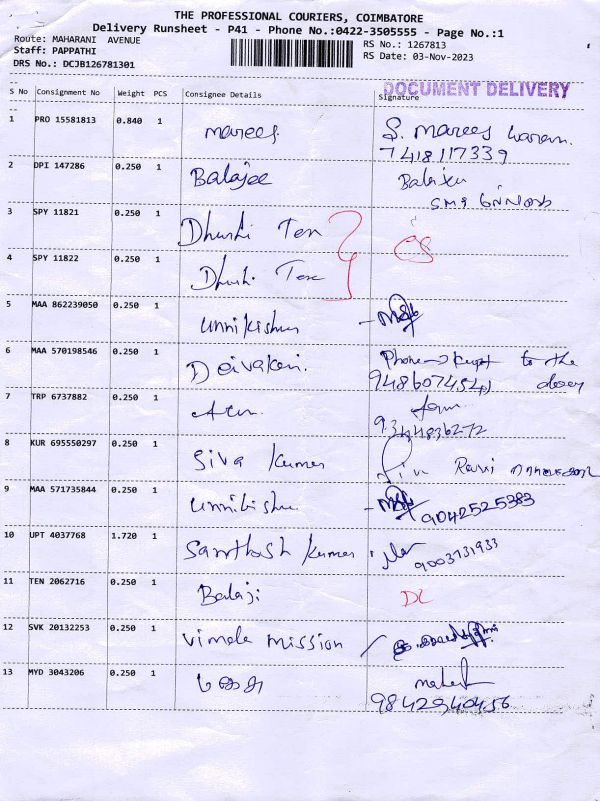 THE PROFESSIONAL COURIERS, COIMBATORE
Delivery Runsheet - P41 - Phone No.:0422-3505555 - Page No.:1
Route: MAHARANI AVENUE
RS No.: 1267813
Staff: PAPPATHI
RS Date: 03-Nov-2023
DRS No.: DCJB126781301
DOCUMENT DELIVERY
S No Consignment No Weight PCS Consignee Details Signature
1 PRO 15581813 0.840 1 marees S. marees
7418117339
2 DPI 147286 0.250 1 Balajee
3 SPY 11821 0.250 1 Dhushi Tex
4 SPY 11822 0.250 1 Dhushi Tex
5 MAA 862239050 0.250 1 unnikishnu
6 MAA 570198546 0.250 1 Deivakani Phone kept to the
door
7 TRP 6737882 0.250 1
8 KUR 695550297 0.250 1 Siva kumar Siva
9 MAA 571735844 0.250 1 unnikishnu 9042525383
10 UPT 4037768 1.720 1 Santhosh kumar 9003731933
11 TEN 2062716 0.250 1 Balaji DL
12 SVK 20132253 0.250 1 Vimala mission
13 MYD 3043206 0.250 1 மகேசு mahesh
9842940456